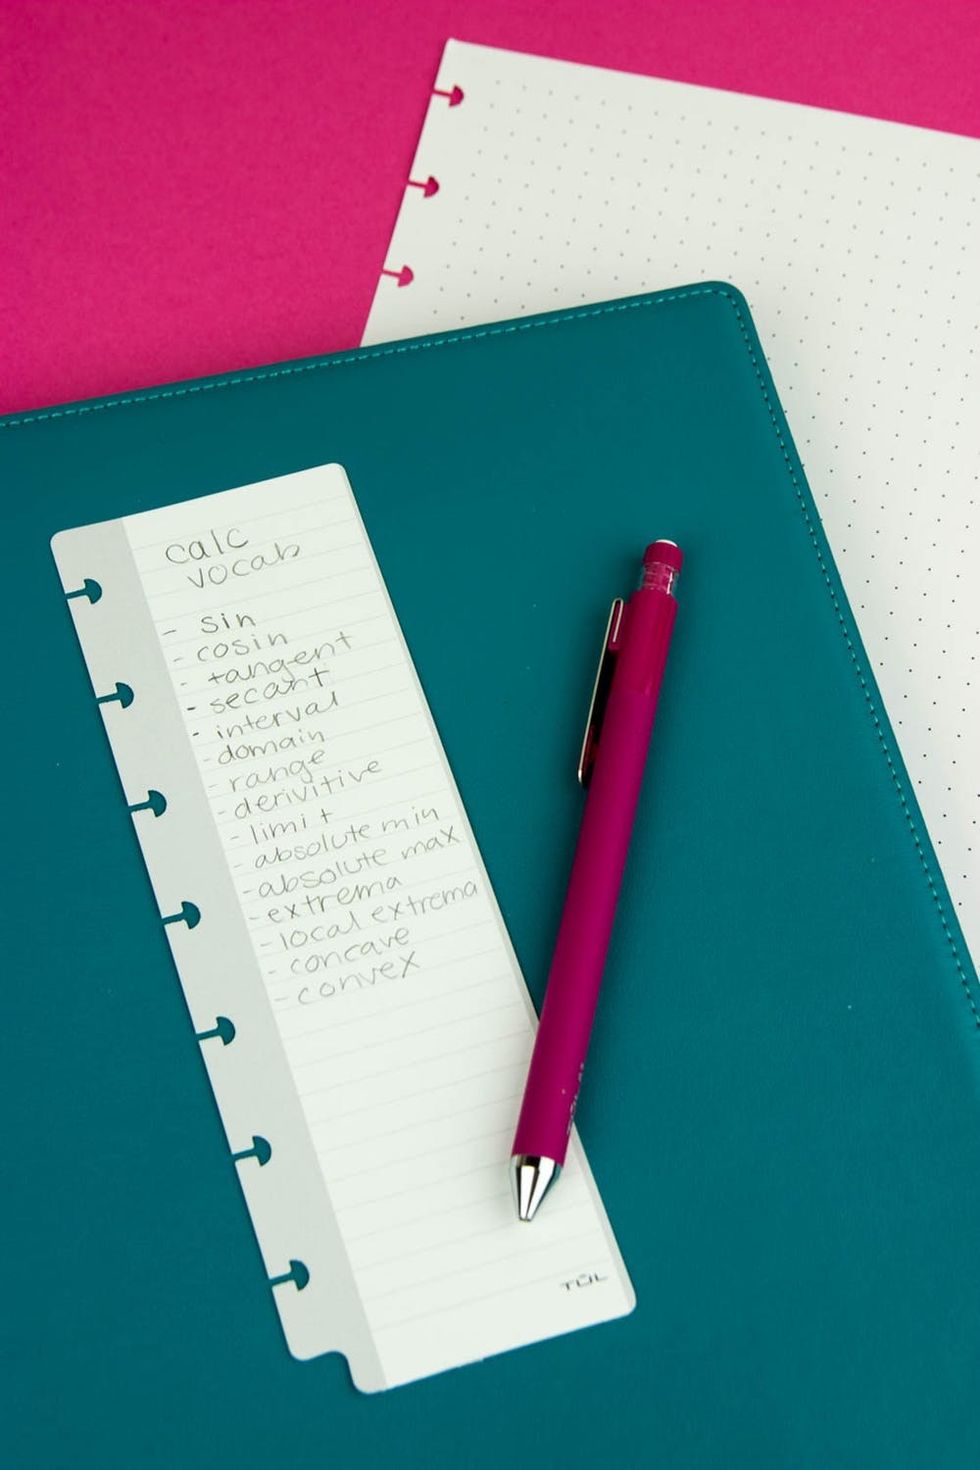 calc
vocab
- sin
- cosin
- tangent
- secant
- interval
- domain
- range
- derivitive
- limit
- absolute min
- absolute max
- extrema
- local extrema
- concave
- convex
TUL